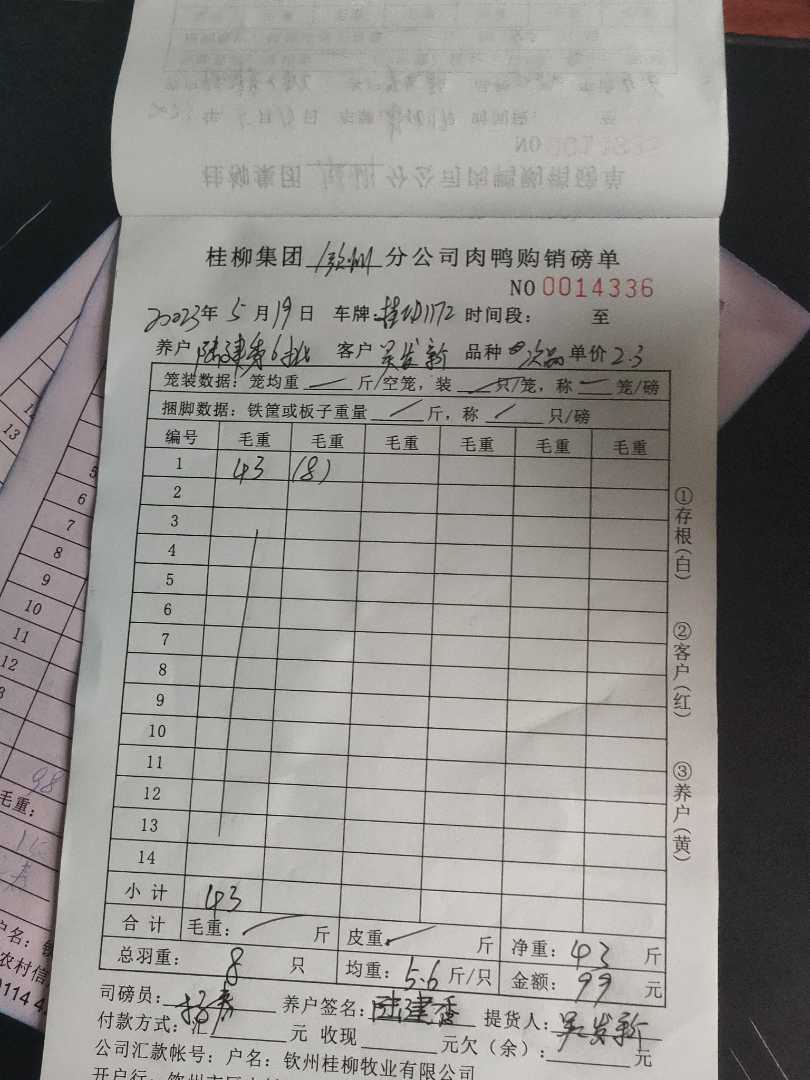 桂柳集团 钦州 分公司肉鸭购销磅单
NO 0014336
2023年 5 月 19 日 车牌: 时间段: 至
养户 陆建香6批 客户 吴发新 品种 次品 单价 2.3
笼装数据: 笼均重 斤/空笼, 装 只/笼, 称 笼/磅
捆脚数据: 铁筐或板子重量 斤, 称 只/磅
编号 毛重 毛重 毛重 毛重 毛重 毛重
1 43 (8)
2
3
4
5
6
7
8
9
10
11
12
13
14
小计 43
合计 毛重: 斤 皮重: 斤 净重: 43 斤
总羽重: 8 只 均重: 5.6 斤/只 金额: 99 元
司磅员: 养户签名: 陆建香 提货人: 吴发新
付款方式: 汇 元 收现 元欠(余): 元
公司汇款帐号: 户名: 钦州桂柳牧业有限公司
①存根(白)
②客户(红)
③养户(黄)
13
6
7
8
9
10
11
12
98
毛重:
农村信